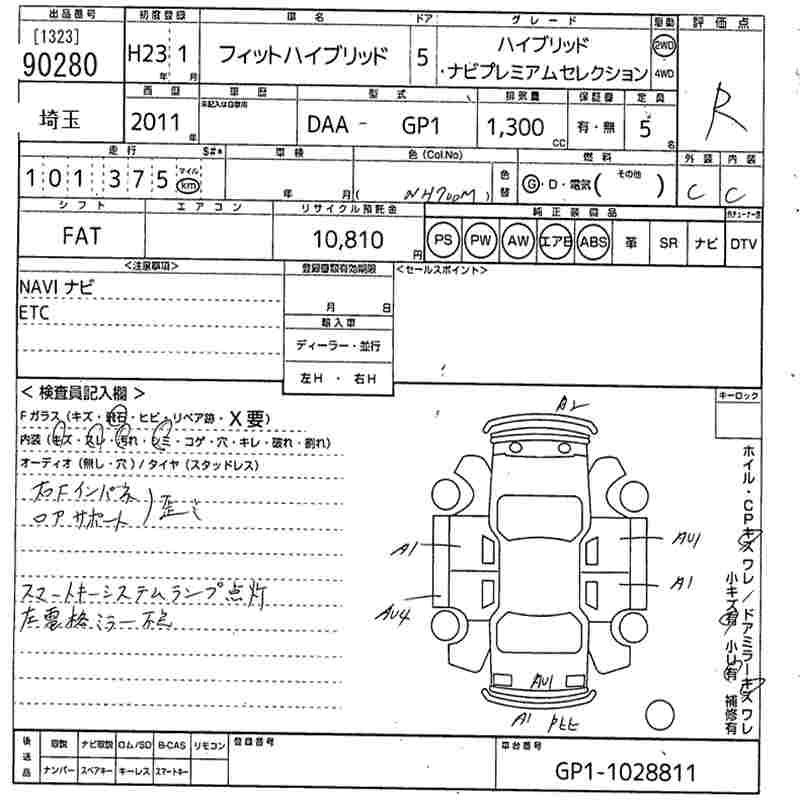 出品番号 初度登録 車名 ドア グレード 駆動 評価点
[1323]
90280 H23 1 年 月 フィットハイブリッド 5 ハイブリッド
・ナビプレミアムセレクション 2WD 4WD
R
西暦 車歴 型式 排気量 保証書 定員
未記入は自家用
埼玉 2011 年 DAA - GP1 1,300 CC 有・無 5 名
走行 S#* 車検 色(Col.No) 燃料 外装 内装
101375 マイル km 年 月 (NH700M) 色替 G・D・電気( その他 ) C C
シフト エアコン リサイクル預託金 純正装備品
FAT 10,810 円 PS PW AW エアB ABS 革 SR ナビ DTV
<注意事項> 登録書類有効期限 <セールスポイント>
NAVI ナビ
ETC
月 日
輸入車
ディーラー・並行
左H ・ 右H
<検査員記入欄> キーロック
Fガラス(キズ・飛石・ヒビ・リペア跡・X要)
内装(キズ・スレ・汚れ・シミ・コゲ・穴・キレ・破れ・割れ)
オーディオ(無し・穴)/タイヤ(スタッドレス)
右Fインパネ
ロアサポート ) 歪ミ
スマートキーシステムランプ点灯
左電格ミラー不良
A2
A1 AU1
A1
AU4
AU1
A1
ホイル・CPキズ ワレ/ドアミラーキズ ワレ
小キズ有/小U有 補修有
後送品 取説 ナビ取説 ロム/SD B-CAS リモコン 登録番号 車台番号
ナンバー スペアキー キーレス スマートキー
GP1-1028811